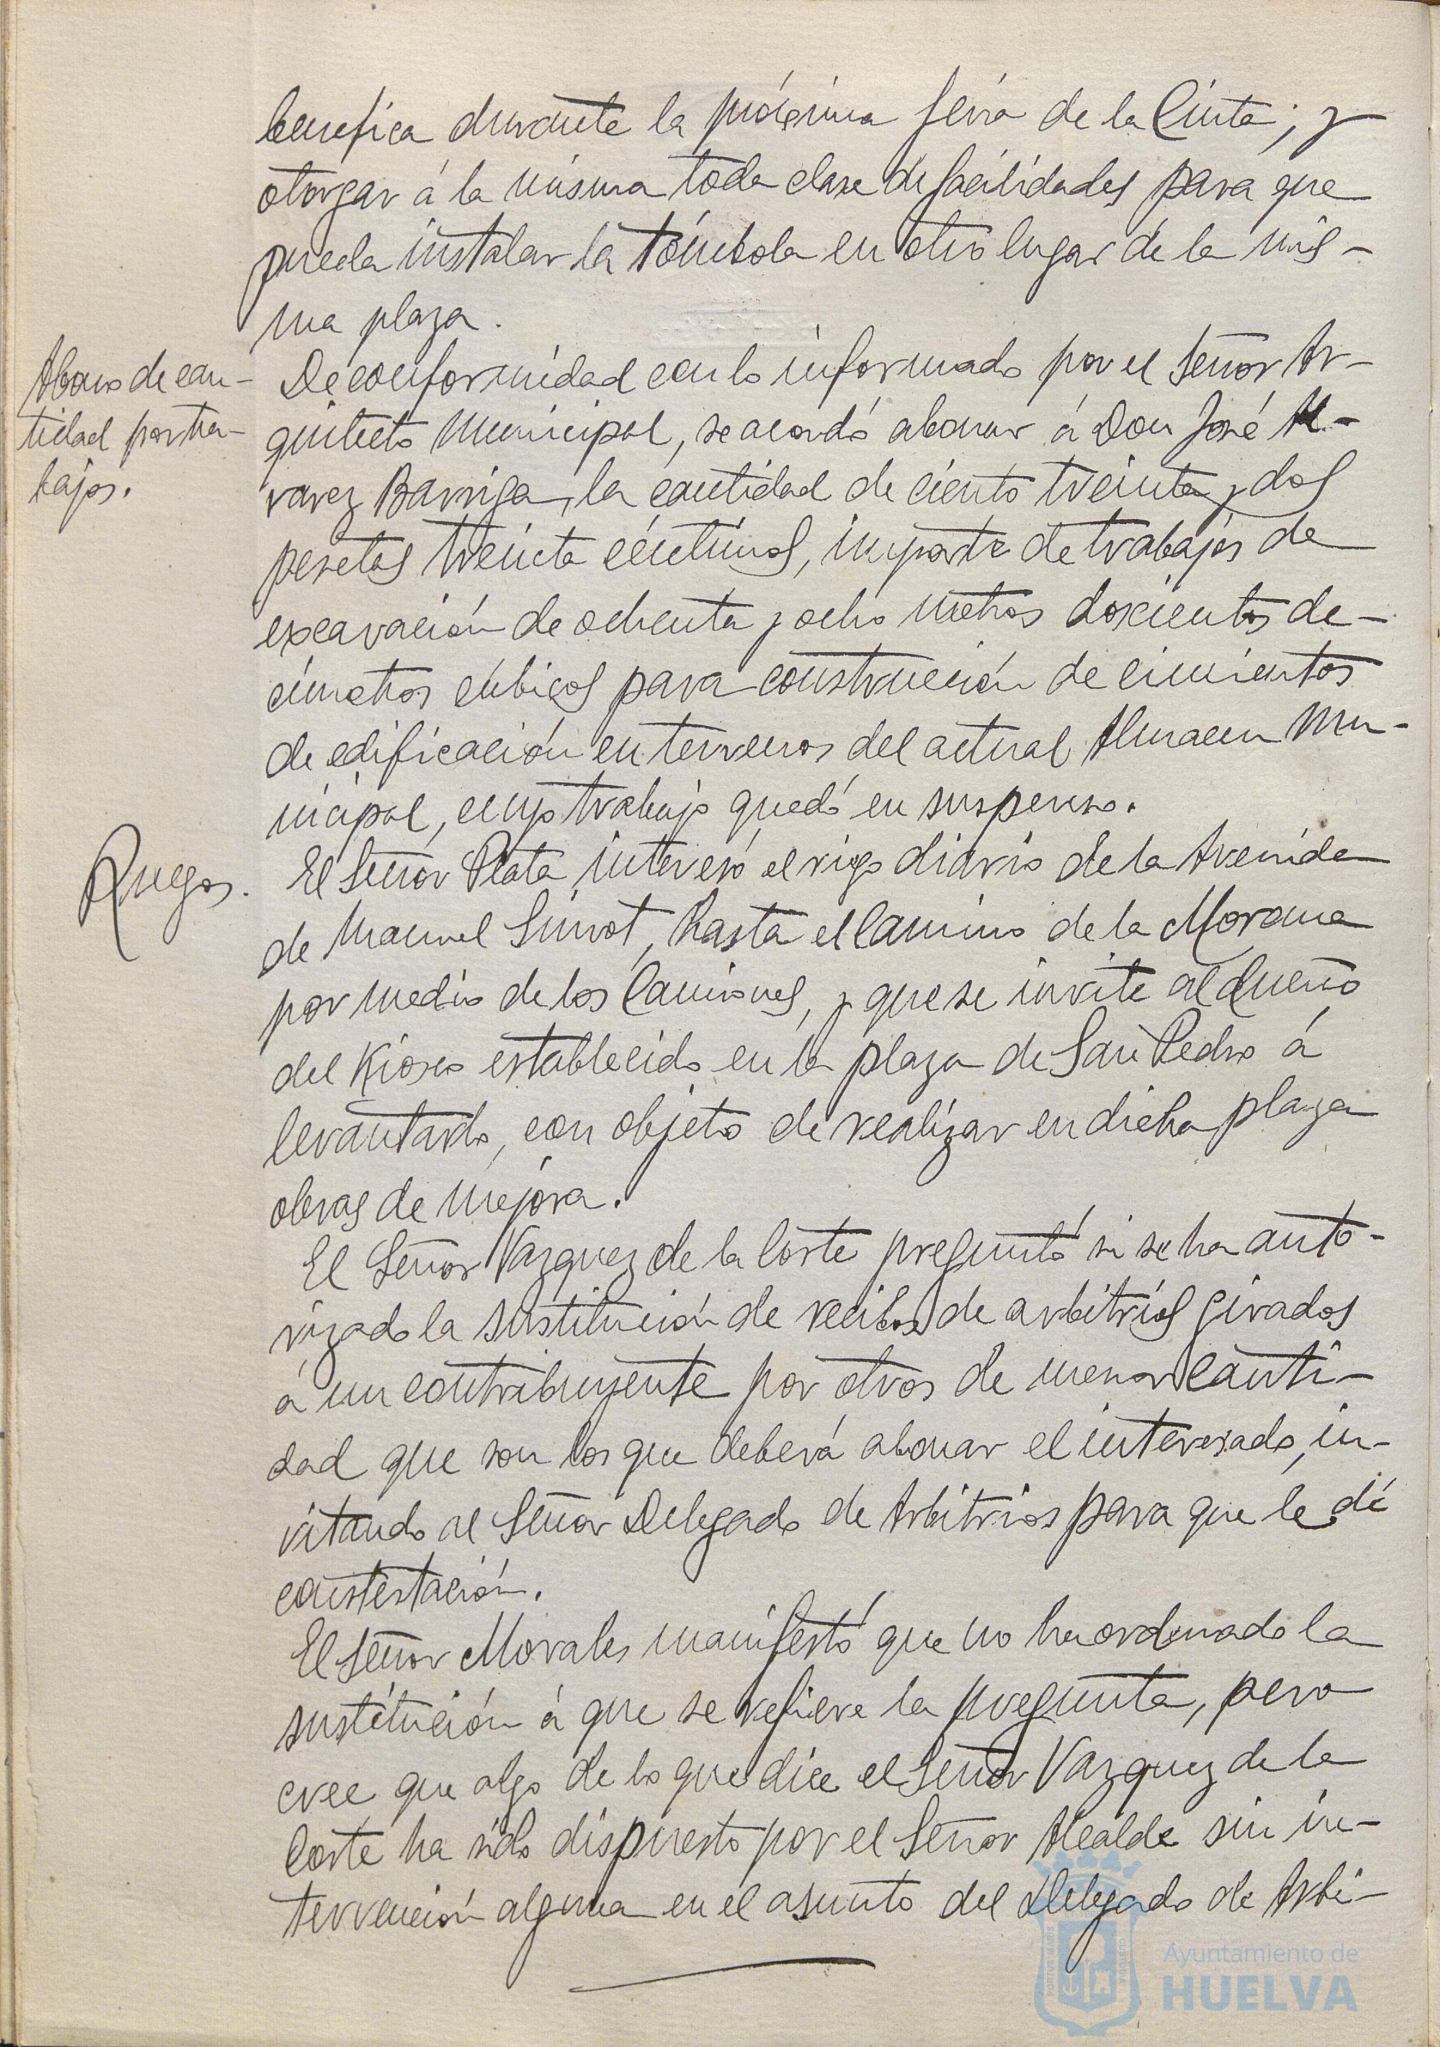 benefica durante la próxima feria de la Cinta; y
otorgar á la misma toda clase de facilidades para que
pueda instalar la tómbola en otro lugar de la mis-
ma plaza.
Abono de can-
tidad por tra-
bajos.
De conformidad con lo informado por el Señor Ar-
quitecto Municipal, se acordó abonar á Don José Al-
varez Barriga, la cantidad de ciento treinta y dos
pesetas treinta céntimos, importe de trabajos de
excavación de ochenta y ocho metros doscientos de-
címetros cúbicos para construcción de cimientos
de edificación en terrenos del actual Almacen Mu-
nicipal, cuyo trabajo quedó en suspenso.
Ruegos.
El Señor Plata interesó el riego diario de la Avenida
de Manuel Siurot, hasta el Camino de la Morana
por medio de los Camiones, y que se invite al dueño
del Kiosco establecido en la plaza de San Pedro á
levantarlo, con objeto de realizar en dicha plaza
obras de mejora.
El Señor Vazquez de la Corte preguntó si se ha auto-
rizado la sustitución de recibos de arbitrios girados
á un contribuyente por otros de menor canti-
dad que son los que deberá abonar el interesado, in-
vitando al Señor Delegado de Arbitrios para que le dé
constestación.
El Señor Morales manifestó que no ha ordenado la
sustitución á que se refiere la pregunta, pero
cree que algo de lo que dice el Señor Vazquez de la
Corte ha sido dispuesto por el Señor Alcalde sin in-
tervención alguna en el asunto del Delegado de Arbi-
Ayuntamiento de
HUELVA